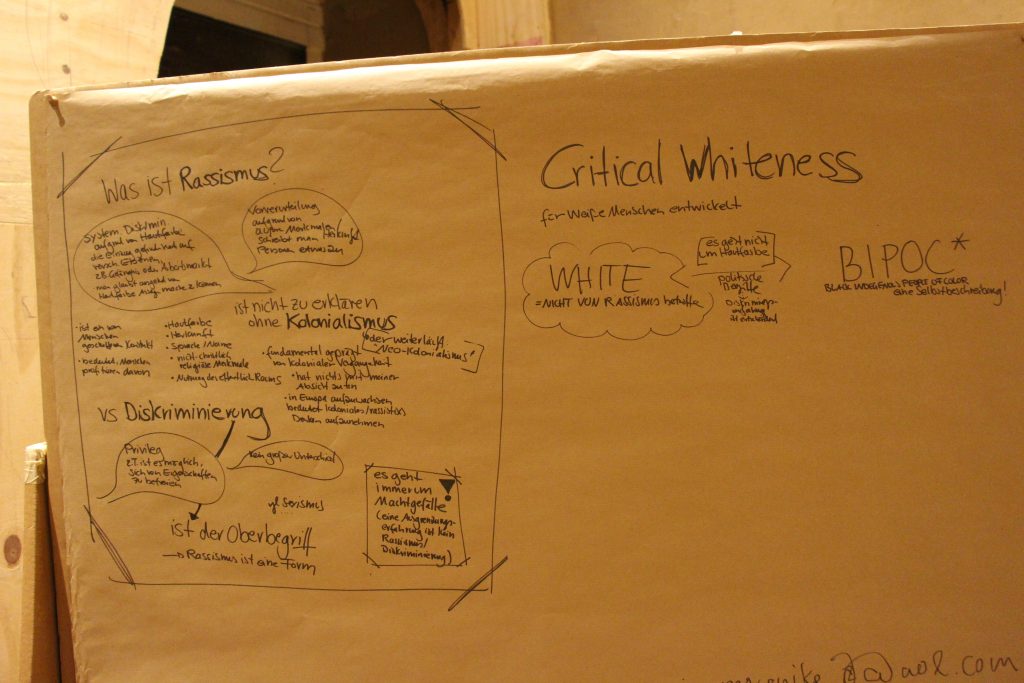 Was ist Rassismus?
System Diskrimin
aufgrund von Hautfarbe
die Einfluss gehabt hat auf
versch. Ebenen,
z.B. Gefängnis oder Arbeitsmarkt
man glaubt aufgrund von
Hautfarbe machen zu können
Vorverurteilung
aufgrund von
äußeren Merkmalen/Herkunft
schreibt man
Personen etwas zu
ist nicht zu erklären
ohne Kolonialismus
[der weiterläuft
Neo-Kolonialismus!]
• ist ein von
Menschen
geschaffenes Konstrukt
• bedeutet, Menschen
profitieren davon
• Hautfarbe
• Herkunft
• Sprache/Name
• nicht-christlich,
religiöse Merkmale
• Nutzung des öffentlich. Raums
• fundamental geprägt
von kolonialer Vergangenheit
• hat nichts mit meiner
Absicht zu tun
• in Europa aufzuwachsen
bedeutet koloniales/rassistisch
Denken aufzunehmen
vs Diskriminierung
Privileg
z.T. ist es möglich,
sich von Eigenschaften
zu befreien
kein großer Unterschied
vgl Sexismus
ist der Oberbegriff
→ Rassismus ist eine Form
es geht
immer um
Machtgefälle
(eine Ausgrenzungs-
erfahrung ist kein
Rassismus/
Diskriminierung)
!
Critical Whiteness
für Weiße Menschen entwickelt
WHITE
= NICHT VON RASSISMUS betroffen
[es geht nicht
um Hautfarbe]
politische
Begriffe
Diskriminierungs-
erfahrung
ist entscheidend
BIPOC*
BLACK INDIGENOUS PEOPLE OF COLOR
eine Selbstbeschreibung!
@aol.com